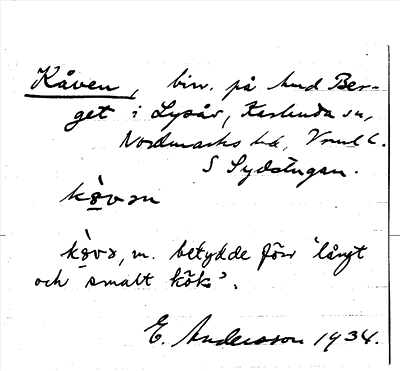 Kåven, bin. på And Ber-
get i Lysås, Karlanda sn,
Nordmarks hd, Vrml l.
S Sydstugan.
kò̤van
kò̤və, m. betydde förr 'långt
och smalt kök'.
E. Andersson 1934.